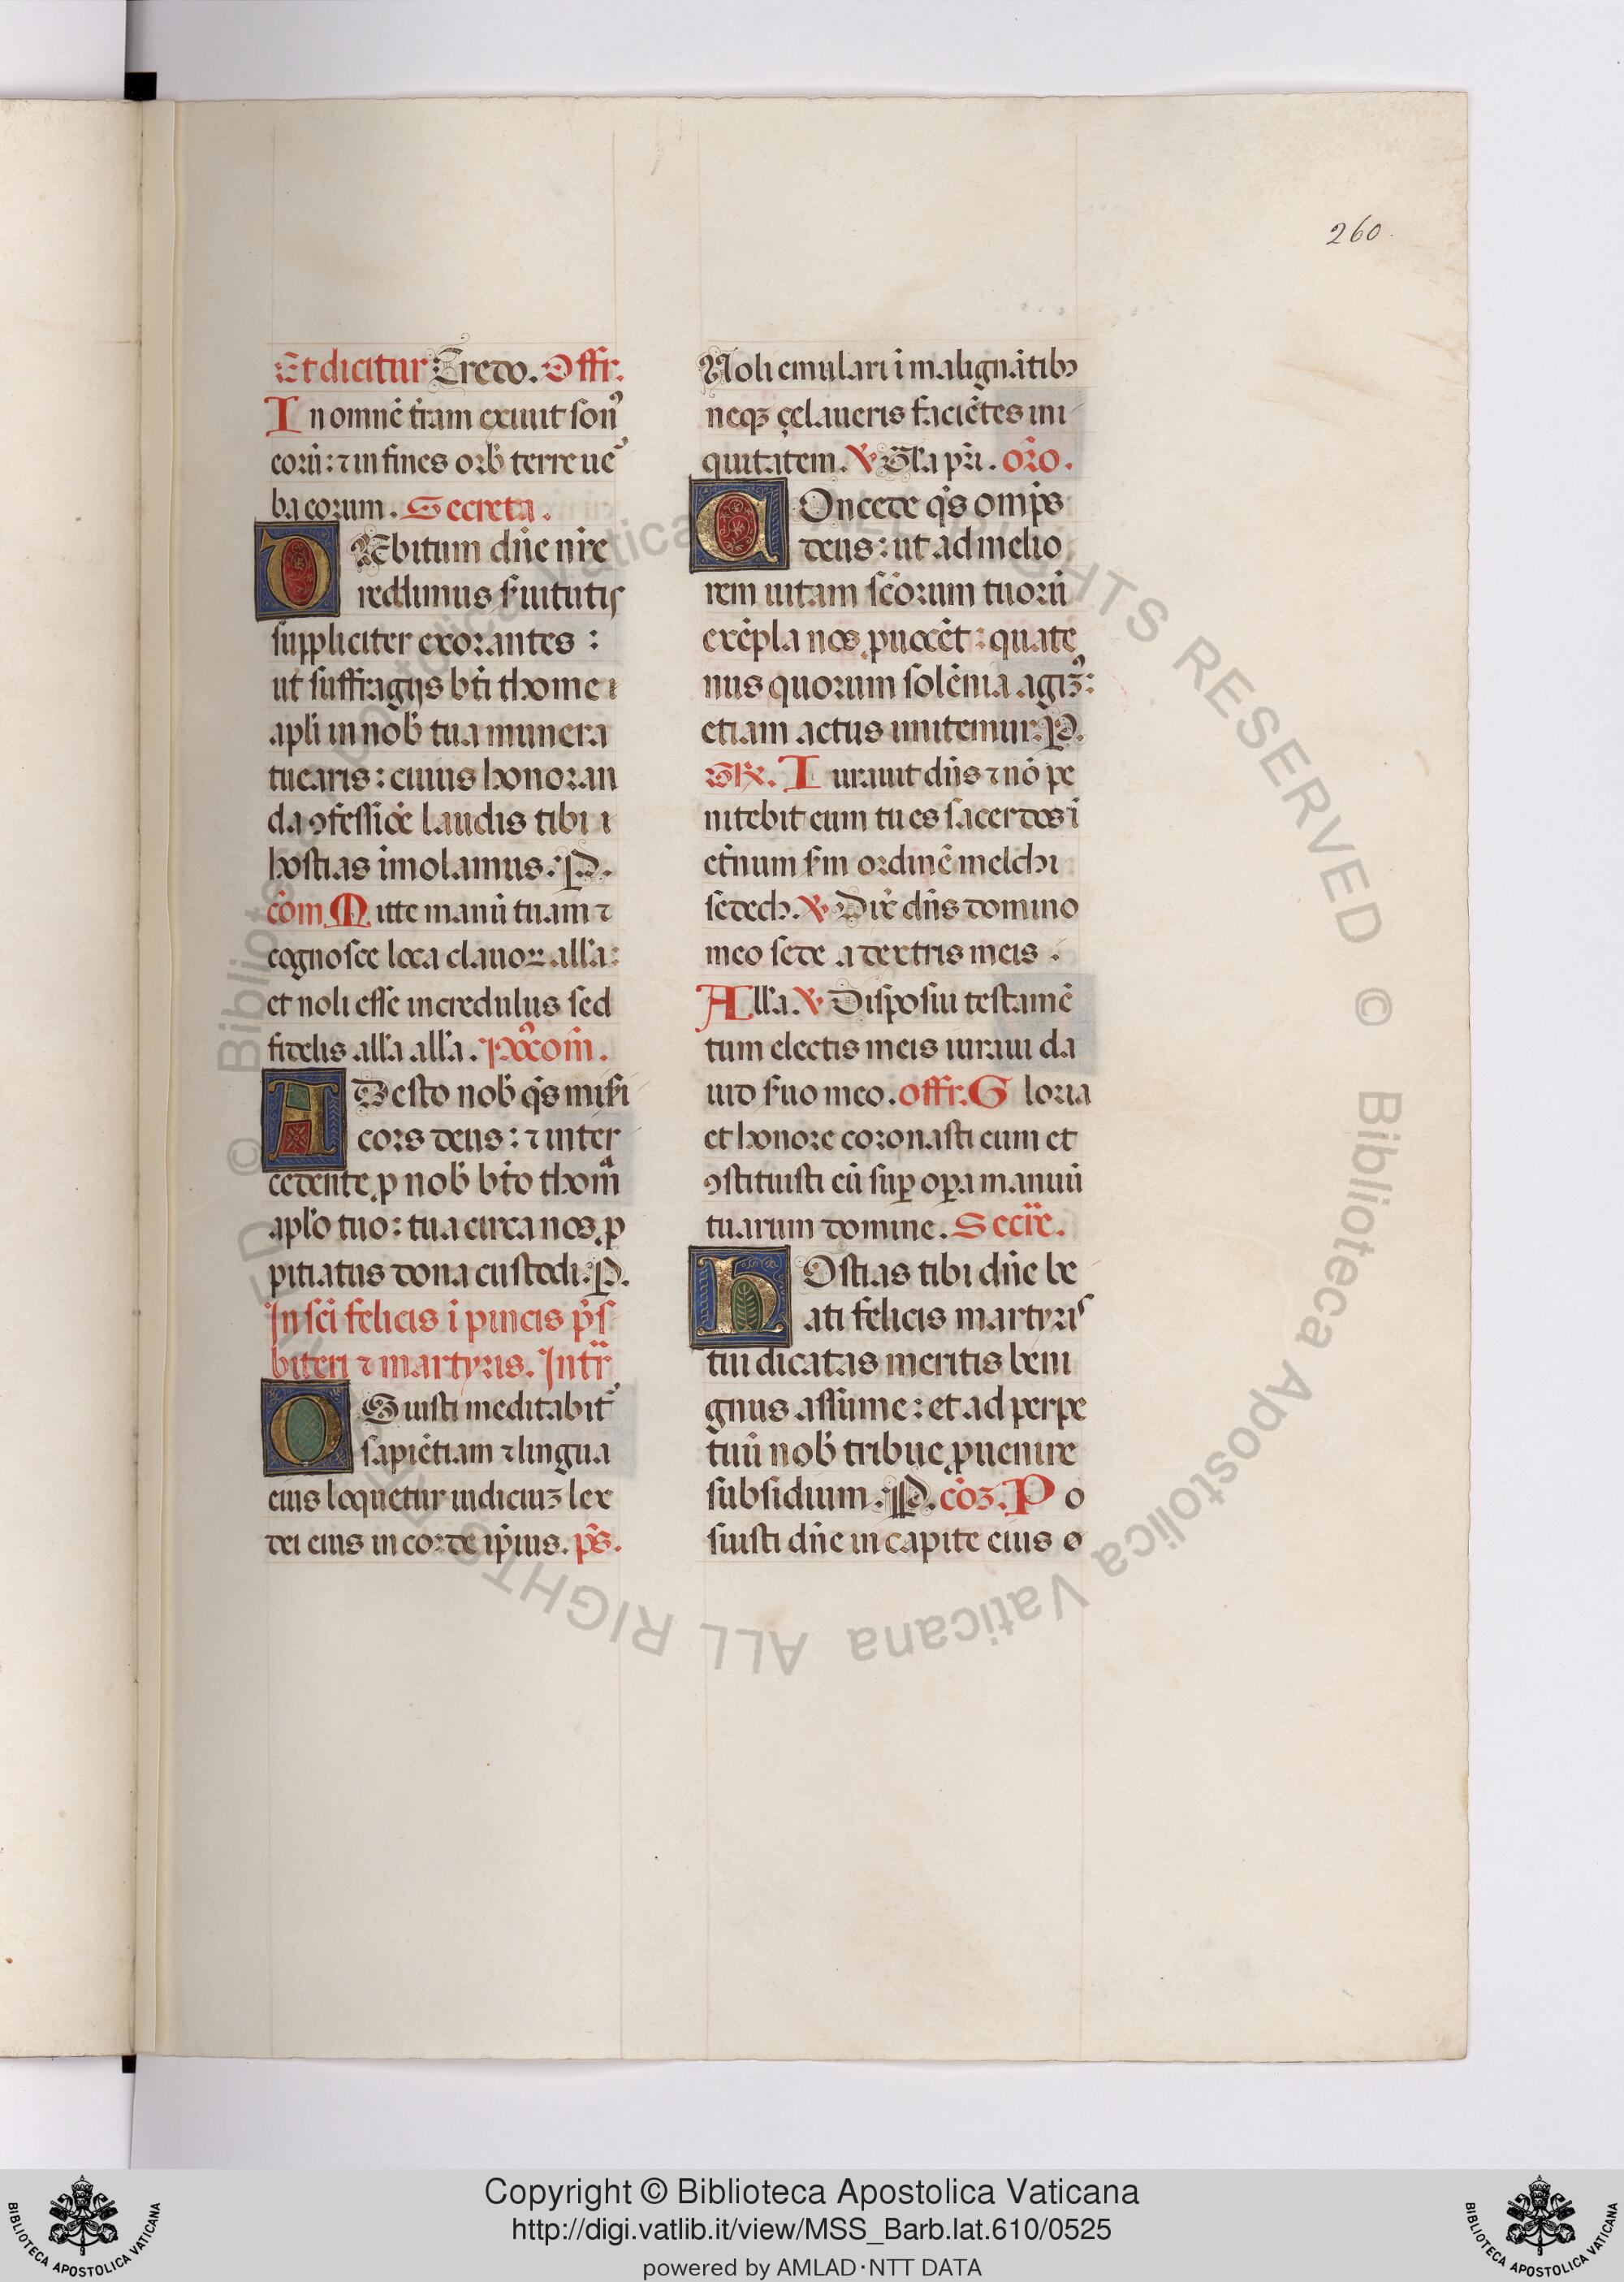 260.
Et dicitur Credo. Offr.
In omnē t̄ram exiuit son⁹
eorū: ⁊ in fines orb̄ terre ue͛
ba eorum. Secreta.
DEbitum dn̄e nr̄e
reddimus s̄uitutis
suppliciter exorantes:
ut suffragijs bt̄i thome
apl̄i in nob̄ tua munera
tuearis: cuius honoran
da ꝯfessiōe laudis tibi
hostias īmolamus. P.
cōm. Mitte manū tuam ⁊
cognosce loca clauoꝝ all̄a:
et noli esse incredulus sed
fidelis all̄a all̄a. p⁹cōm̄.
ADesto nob̄ q̄s mis̄i
cors deus: ⁊ inter
cedente ꝓ nob̄ bt̄o thomᵃ
apl̄o tuo: tua circa nos ꝓ
pitiatus dona custodi. P.
In sc̄i felicis ī pincis p̄s
biteri ⁊ martyris. Intr̄
OS iusti meditabit᷑
sapiētiam ⁊ lingua
eius loquetur iudiciuꝫ lex
dei eius in corde ip̄ius. p̄s.
Noli emulari ī malignātibꝫ
neqꝫ çelaueris faciētes ini
quitatem. ℣ Gl̄a pr̄i. or̄o.
COncede q̄s omp̄s
deus: ut ad melio
rem uitam sc̄orum tuorū
exēpla nos ꝓuocēt: quate
nus quorum solēnia agiꝫ⁹:
etiam actus imitemur. P.
Gr̄. Iurauit dn̄s ⁊ nō pe
nitebit eum tu es sacerdos ī
et̄num s̄m ordinē melchi
sedech. ℣ Dix̄ dn̄s domino
meo sede a dextris meis.
All̄a. ℣ Disposui testamē
tum electis meis iuraui da
uid s̄uo meo. offr. Gloria
et honore coronasti eum et
ꝯstituisti eū suꝑ oꝑa manuū
tuarum domine. Secr̄e.
HOstias tibi dn̄e be
ati felicis martyris
tui dicatas meritis beni
gnus assume: et ad perpe
tuū nob̄ tribue ꝓuenire
subsidium. P. cōꝫ. Po
suisti dn̄e in capite eius
Copyright © Biblioteca Apostolica Vaticana
http://digi.vatlib.it/view/MSS_Barb.lat.610/0525
powered by AMLAD·NTT DATA
BIBLIOTECA APOSTOLICA VATICANA
BIBLIOTECA APOSTOLICA VATICANA
© Biblioteca Apostolica Vaticana ALL RIGHTS RESERVED © Biblioteca Apostolica Vaticana ALL RIGHTS RESERVED